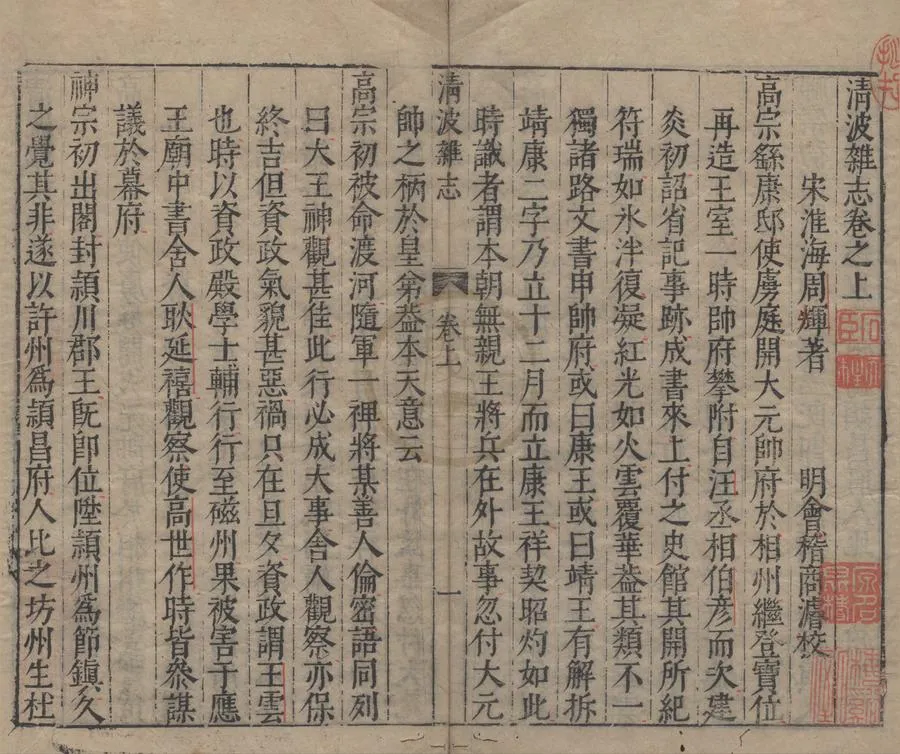 清波雜志卷之上
宋淮海周煇著 明會稽商濬校
高宗繇康邸使虜庭開大元帥府於相州繼登寶位
再造王室一時帥府攀附自汪丞相伯彥而次建
炎初詔省記事跡成書來上付之史館其開所紀
符瑞如氷泮復凝紅光如火雲覆華葢其類不一
獨諸路文書申帥府或曰康王或曰靖王有解拆
靖康二字乃立十二月而立康王祥契昭灼如此
時識者謂本朝無親王將兵在外故事忽付大元
帥之柄於皇弟葢本天意云
清波雜志 卷上 一
高宗初被命渡河隨軍一裨將某善人倫密語同列
曰大王神觀甚佳此行必成大事舍人觀察亦保
終吉但資政氣貌甚惡禍只在旦夕資政謂王雲
也時以資政殿學士輔行行至磁州果被害于應
王廟中書舍人耿延禧觀察使高世作時皆參謀
議於幕府
神宗初出閣封頴川郡王旣卽位陞頴州爲節鎮久
之覺其非遂以許州爲頴昌府人比之坊州生杜